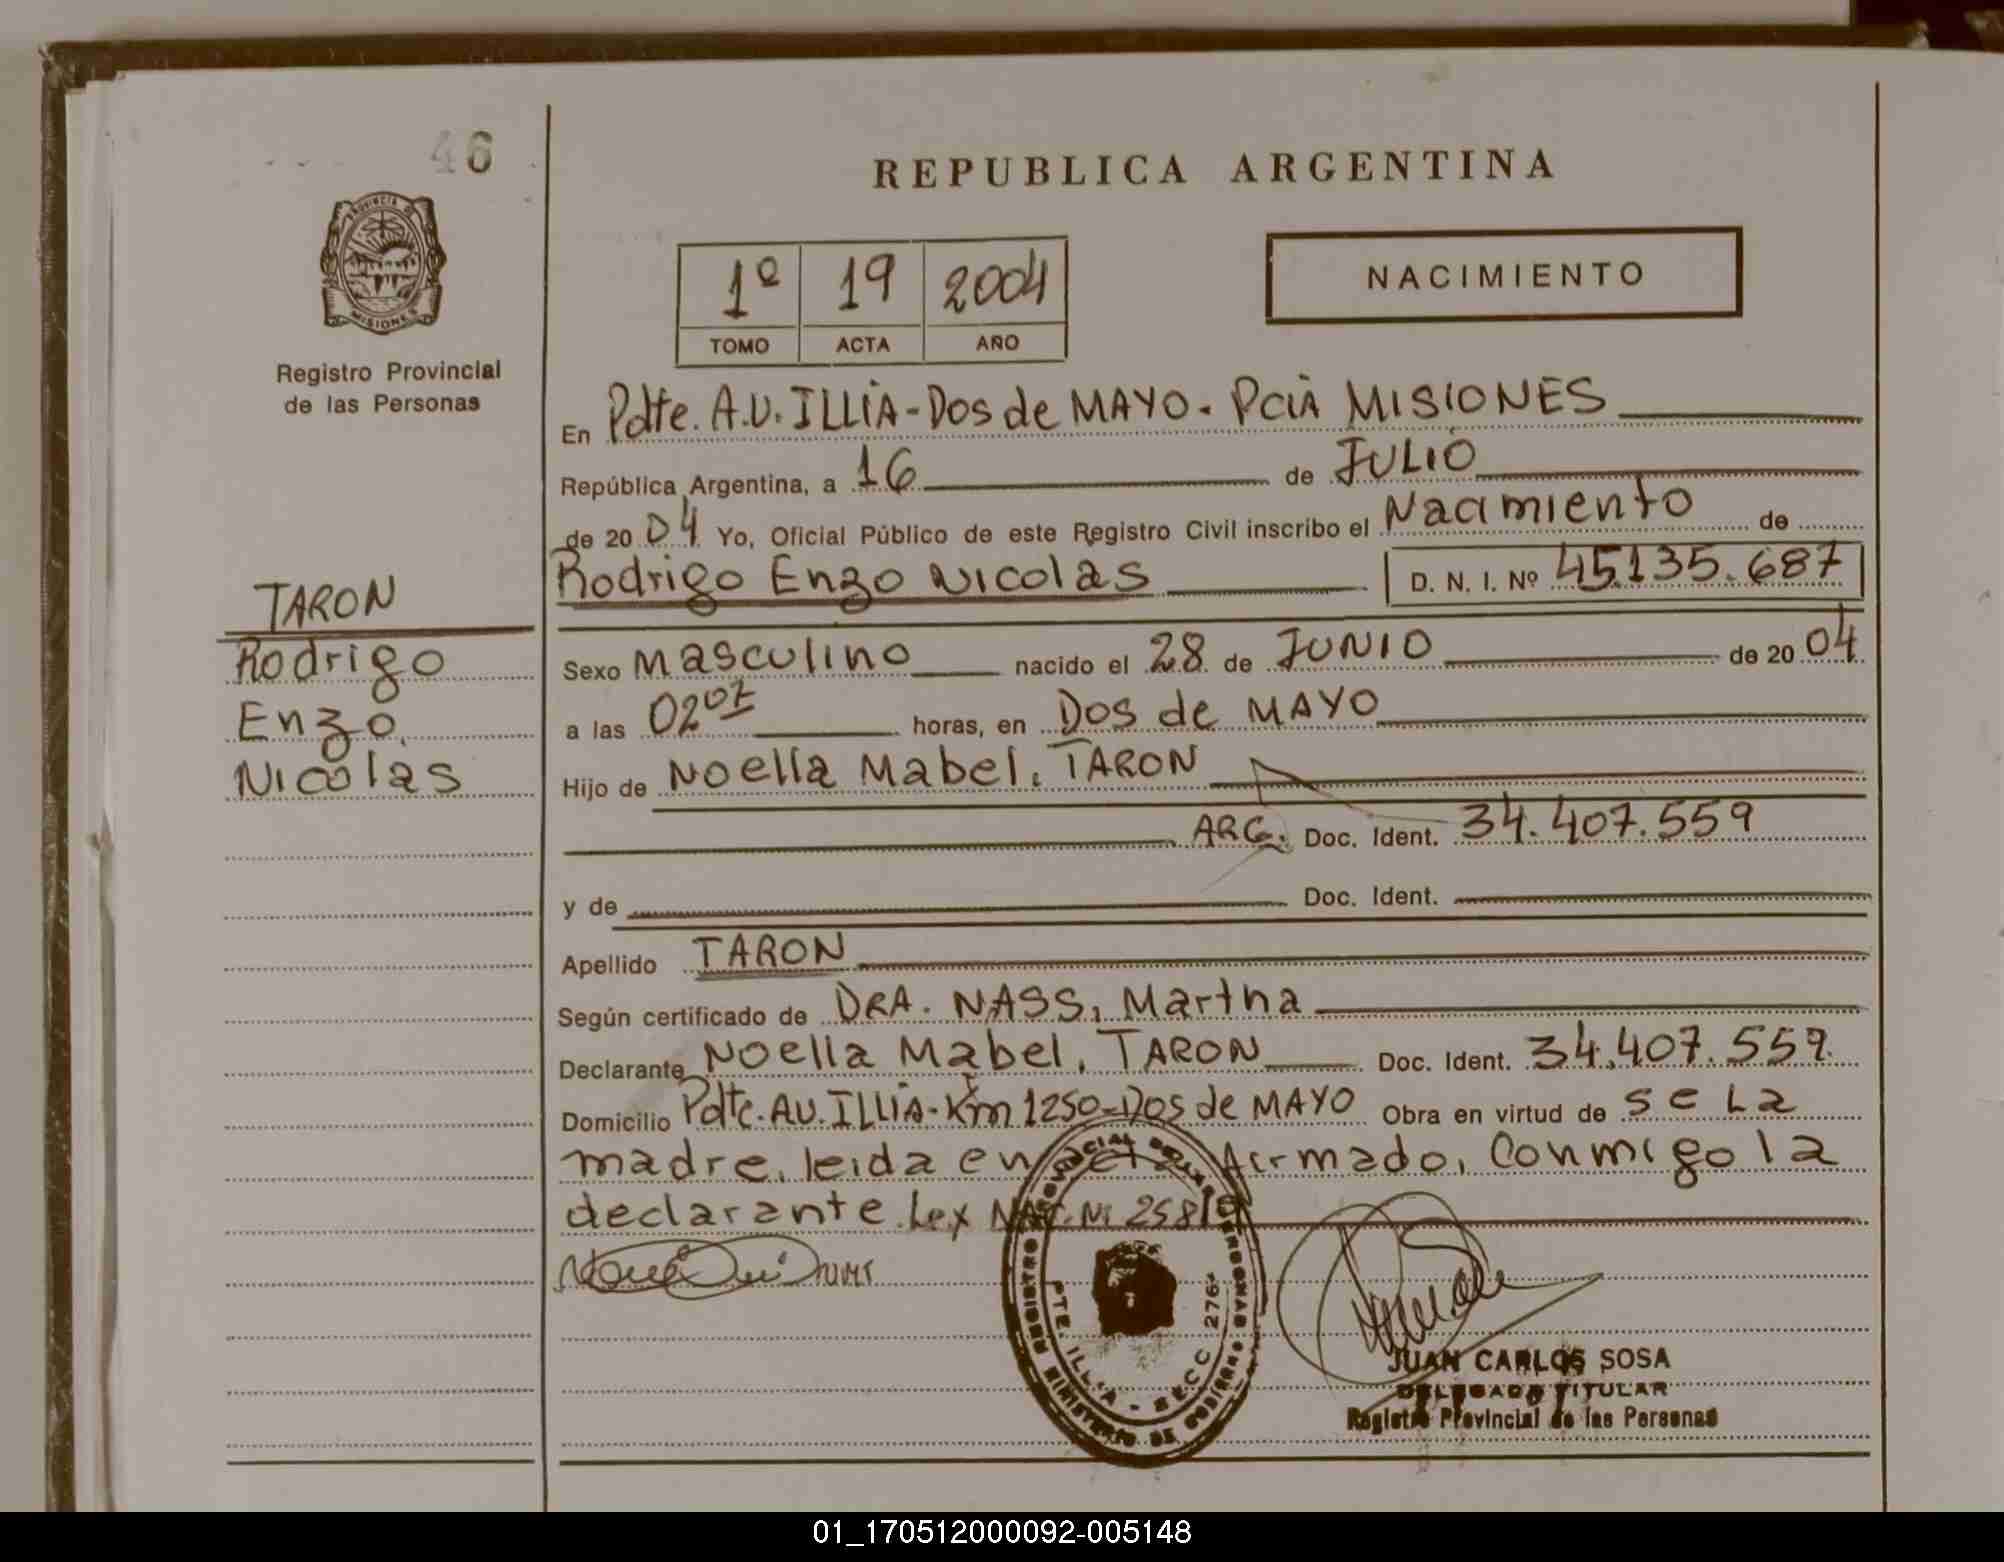 46
REPUBLICA ARGENTINA
PROVINCIA DE
MISIONES
Registro Provincial
de las Personas
1º 19 2004
TOMO ACTA AÑO
NACIMIENTO
En Pdte. A.U. ILLIA - Dos de MAYO - Pcia MISIONES
República Argentina, a 16 de JULIO
de 20 04 Yo, Oficial Público de este Registro Civil inscribo el Nacimiento de
Rodrigo Enzo Nicolas D. N. I. Nº 45.135.687
TARON
Rodrigo
Enzo
Nicolas
Sexo Masculino nacido el 28 de JUNIO de 20 04
a las 02 07 horas, en Dos de MAYO
Hijo de Noelia Mabel, TARON
ARG. Doc. Ident. 34.407.559
y de Doc. Ident.
Apellido TARON
Según certificado de DRA. NASS, Martha
Declarante Noelia Mabel, TARON Doc. Ident. 34.407.559
Domicilio Pdte. A.U. ILLIA - Km 1250 - Dos de MAYO Obra en virtud de se La
madre, leida en acta, firmado, Conmigo la
declarante. Lex NAC. Nº 25819
REGISTRO PROVINCIAL DE LAS PERSONAS
MINISTERIO DE GOBIERNO
PTE. ILLIA - SECC 276
JUAN CARLOS SOSA
DELEGADO TITULAR
Registro Provincial de las Personas
01_170512000092-005148